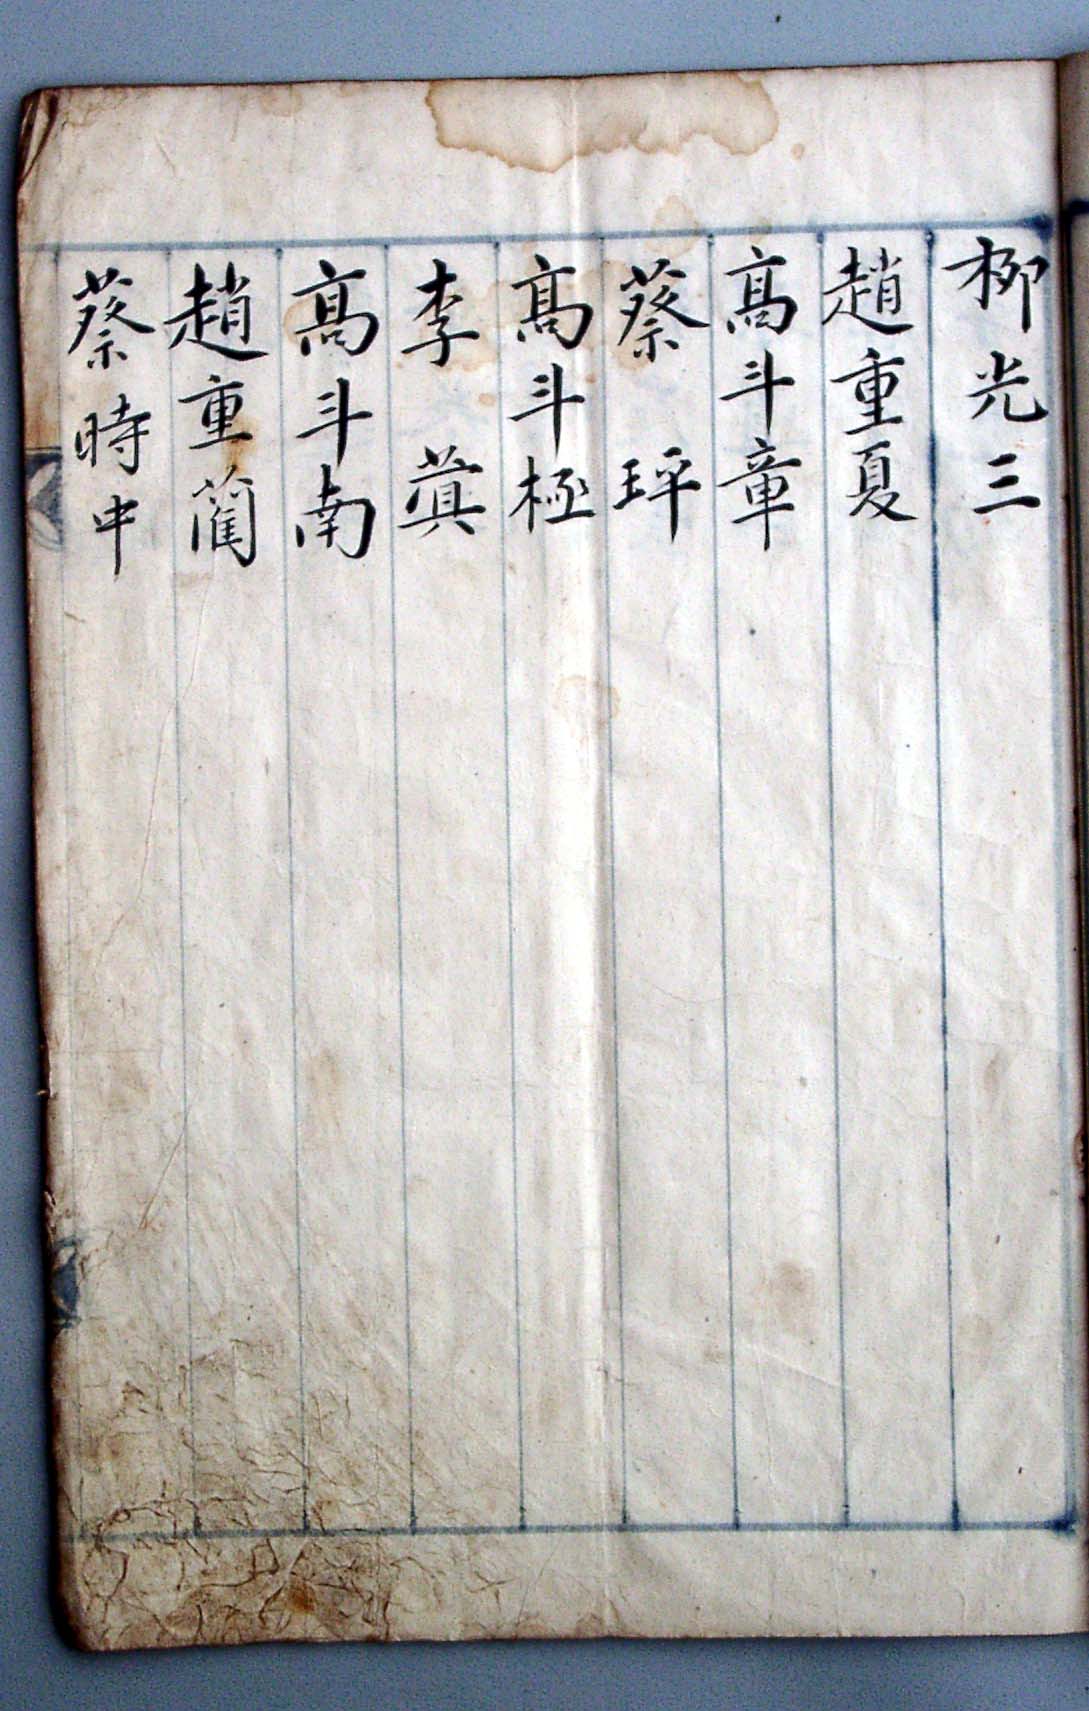 柳光三
趙重夏
髙斗章
蔡玶
髙斗極
李蓂
髙斗南
趙重藺
蔡時中